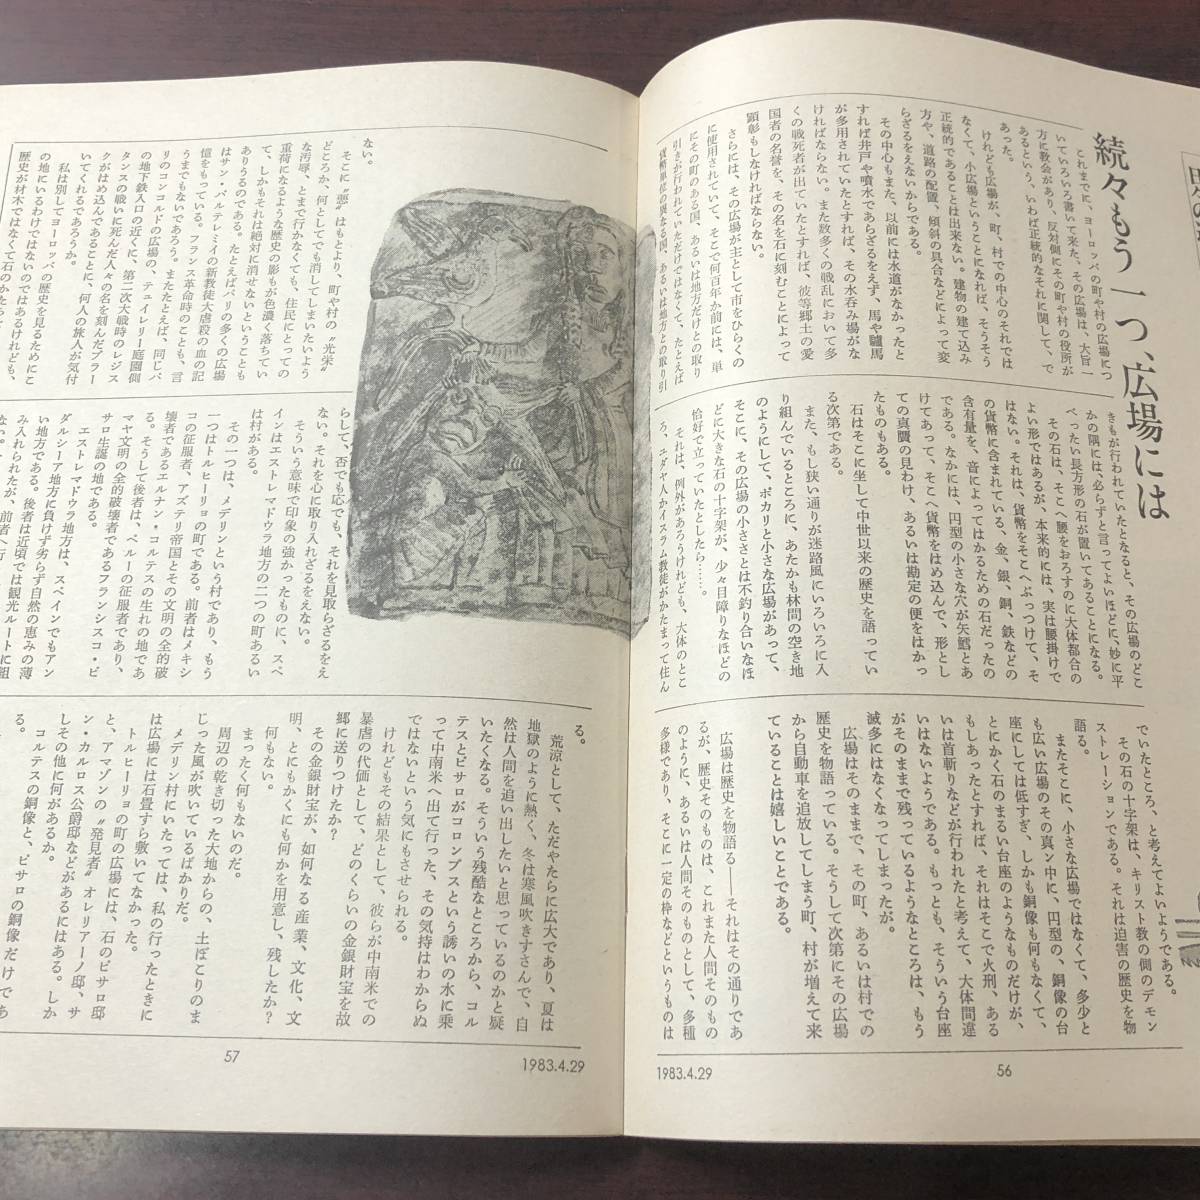 続々もう一つ、広場には
これまでに、ヨーロッパの町や村の広場につ
いていろいろ書いて来た。その広場は、大旨一
方に教会があり、反対側にその町や村の役所が
あるという、いわば正統的なそれに関して、で
あった。
けれども広場が、町、村での中心のそれでは
なくて、小広場ということになれば、そうそう
正統的であることは出来ない。建物の建て込み
方や、道路の配置、傾斜の具合などによって変
らざるをえないからである。
その中心もまた、以前には水道がなかったと
すれば井戸や噴水であらざるをえず、馬や驢馬
が多用されていたとすれば、その水呑み場がな
ければならない。また数多くの戦乱において多
くの戦死者が出ていたとすれば、彼等郷土の愛
国者の名誉を、その名を石に刻むことによって
顕彰もしなければならない。
さらには、その広場が主として市をひらくの
に使用されていて、そこで何百年か前には、単
にその町のある国、あるいは地方だけとの取り
引きが行われていただけではなくて、たとえば
貨幣単位の異なる国、あるいは地方との取り引
きもが行われていたとなると、その広場のどこ
かの隅には、必らずと言ってよいほどに、妙に平
べったい長方形の石が置いてあることになる。
その石は、そこへ腰をおろすのに大体都合の
よい形ではあるが、本来的には、実は腰掛けで
はない。それは、貨幣をそこへぶっつけて、そ
の貨幣に含まれている、金、銀、銅、鉄などの
含有量を、音によってはかるための石だったの
である。なかには、円型の小さな穴が矢鱈とあ
けてあって、そこへ貨幣をはめ込んで、形とし
ての真贋の見わけ、あるいは勘定の便をはかっ
たものもある。
石はそこに坐して中世以来の歴史を語ってい
る次第である。
また、もし狭い通りが迷路風にいろいろに入
り組んでいるところに、あたかも林間の空き地
のようにして、ポカリと小さな広場があって、
そこに、その広場の小ささとは不釣り合いなほ
どに大きな石の十字架が、少々目障りなほどの
恰好で立っていたとしたら……。
それは、例外があろうけれども、大体のとこ
ろ、ユダヤ人かイスラム教徒がかたまって住ん
でいたところ、と考えてよいようである。
その石の十字架は、キリスト教の側のデモン
ストレーションである。それは迫害の歴史を物
語る。
またそこに、小さな広場ではなくて、多少と
も広い広場のその真ン中に、円型の、銅像の台
座にしては低すぎ、しかも銅像も何もなくて、
とにかく石のまるい台座のようなものだけが、
もしあったとすれば、それはそこで火刑、ある
いは首斬りなどが行われたと考えて、大体間違
いはないようである。もっとも、そういう台座
がそのままで残っているようなところは、もう
滅多にはなくなってしまったが。
広場はそのままで、その町、あるいは村での
歴史を物語っている。そうして次第にその広場
から自動車を追放してしまう町、村が増えて来
ていることは嬉しいことである。
広場は歴史を物語る——それはその通りであ
るが、歴史そのものは、これまた人間そのもの
のように、あるいは人間そのものとして、多種
多様であり、そこに一定の枠などというものは
1983.4.29
56
ない。
そこに〝悪〟はもとより、町や村の〝光栄〟
どころか、何としてでも消してしまいたいよう
な汚辱、とまで行かなくても、住民にとっての
重荷になるような歴史の影もが色濃く落ちてい
て、しかもそれは絶対に消せないということも
ありうるのである。たとえばパリの多くの広場
はサン・バルテルミイの新教徒大虐殺の血の記
憶をもっている。フランス革命時のことも、言
うまでもないであろう。またたとえば、同じパ
リのコンコルドの広場の、テュイレリー庭園側
の地下鉄入口の近くに、第二次大戦時のレジス
タンスの戦いに死んだ人々の名を刻んだプラー
クがはめ込んであることに、何人の旅人が気付
いてくれるであろうか。
私は別してヨーロッパの歴史を見るためにこ
の地にいるわけではないのではあるけれども、
歴史が材木ではなくて石のかたち
らして、否でも応でも、それを見取らざるをえ
ない。それを心に取り入れざるをえない。
そういう意味で印象の強かったものに、スペ
インはエストレマドゥラ地方の二つの町あるい
は村がある。
その一つは、メデリンという村であり、もう
一つはトルヒーリョの町である。前者はメキシ
コの征服者、アズテリ帝国とその文明の全的破
壊者であるエルナン・コルテスの生れの地であ
る。そうして後者は、ペルーの征服者であり、
マヤ文明の全的破壊者であるフランシスコ・ピ
サロ生誕の地である。
エストレマドゥラ地方は、スペインでもアン
ダルシーア地方に負けず劣らず自然の恵みの薄
い地方である。後者は近頃では観光ルートに組
み入れられたが、前者へ行
る。
荒涼として、ただやたらに広大であり、夏は
地獄のように熱く、冬は寒風吹きすさんで、自
然は人間を追い出したいと思っているのかと疑
いたくなる。そういう残酷なところから、コル
テスとピサロがコロンブスという誘いの水に乗
って中南米へ出て行った、その気持はわからぬ
ではないという気にもさせられる。
けれどもその結果として、彼らが中南米での
暴虐の代価として、どのくらいの金銀財宝を故
郷に送りつけたか？
その金銀財宝が、如何なる産業、文化、文
明、ともかくにも何かを用意し、残したか？
何もない。
まったく何もないのだ。
周辺の乾き切った大地からの、土ぼこりのま
じった風が吹いているばかりだ。
メデリン村にいたっては、私の行ったときに
は広場には石畳すら敷いてなかった。
トルヒーリョの町の広場には、石のピサロ邸
と、アマゾンの〝発見者〟オレリアーノ邸、サ
ン・カルロス公爵邸などがあるにはある。しか
しその他に何があるか。
コルテスの銅像と、ピサロの銅像だけであ
る。
57
1983.4.29